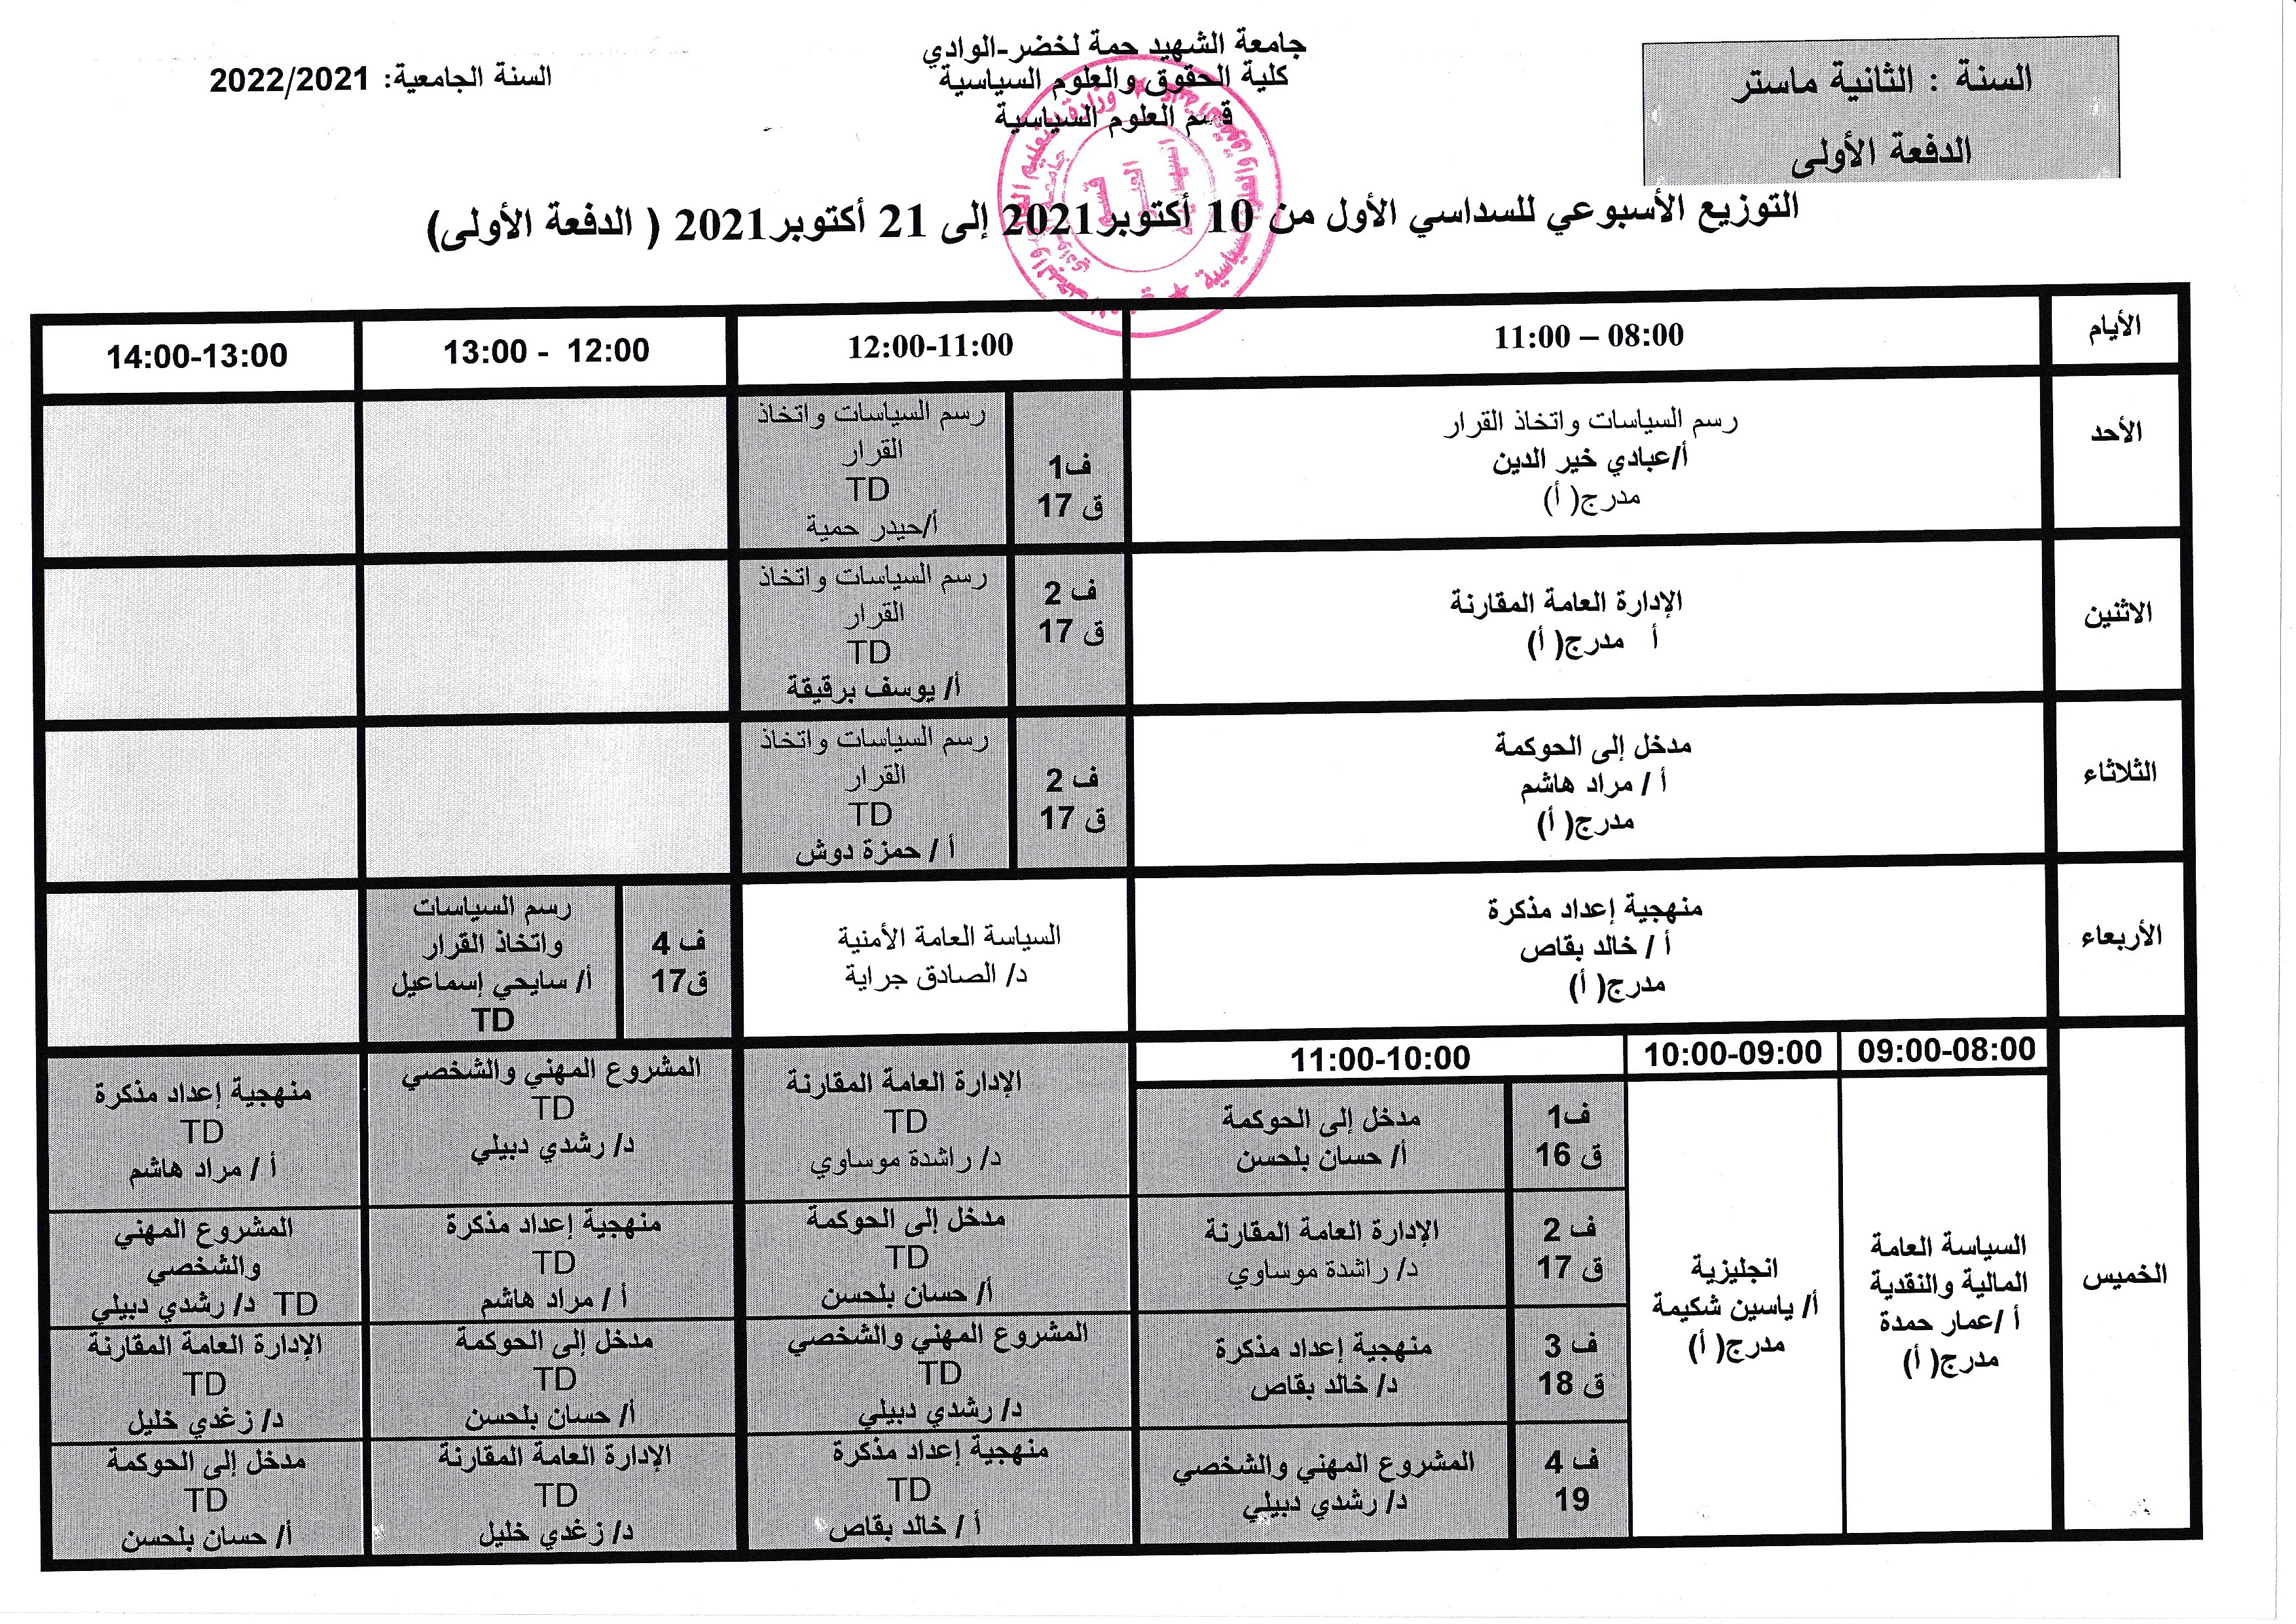 السنة : الثانية ماستر
الدفعة الأولى
جامعة الشهيد حمة لخضر-الوادي
كلية الحقوق والعلوم السياسية
قسم العلوم السياسية
السنة الجامعية: 2022/2021
التوزيع الأسبوعي للسداسي الأول من 10 أكتوبر2021 إلى 21 أكتوبر2021 ( الدفعة الأولى)
الأيام
11:00 – 08:00
12:00-11:00
13:00 - 12:00
14:00-13:00
الأحد
رسم السياسات واتخاذ القرار
أ/عبادي خير الدين
مدرج( أ)
ف1
ق 17
رسم السياسات واتخاذ
القرار
TD
أ/حيدر حمية
الاثنين
الإدارة العامة المقارنة
أ مدرج( أ)
ف 2
ق 17
رسم السياسات واتخاذ
القرار
TD
أ/ يوسف برقيقة
الثلاثاء
مدخل إلى الحوكمة
أ / مراد هاشم
مدرج( أ)
ف 2
ق 17
رسم السياسات واتخاذ
القرار
TD
أ / حمزة دوش
الأربعاء
منهجية إعداد مذكرة
أ / خالد بقاص
مدرج( أ)
السياسة العامة الأمنية
د/ الصادق جراية
ف 4
ق17
رسم السياسات
واتخاذ القرار
أ/ سايحي إسماعيل
TD
الخميس
09:00-08:00
10:00-09:00
11:00-10:00
السياسة العامة
المالية والنقدية
أ /عمار حمدة
مدرج( أ)
انجليزية
أ/ ياسين شكيمة
مدرج( أ)
ف1
ق 16
مدخل إلى الحوكمة
أ/ حسان بلحسن
الإدارة العامة المقارنة
TD
د/ راشدة موساوي
المشروع المهني والشخصي
TD
د/ رشدي دبيلي
منهجية إعداد مذكرة
TD
أ / مراد هاشم
ف 2
ق 17
الإدارة العامة المقارنة
د/ راشدة موساوي
مدخل إلى الحوكمة
TD
أ/ حسان بلحسن
منهجية إعداد مذكرة
TD
أ / مراد هاشم
المشروع المهني
والشخصي
TD د/ رشدي دبيلي
ف 3
ق 18
منهجية إعداد مذكرة
د/ خالد بقاص
المشروع المهني والشخصي
TD
د/ رشدي دبيلي
مدخل إلى الحوكمة
TD
أ/ حسان بلحسن
الإدارة العامة المقارنة
TD
د/ زغدي خليل
ف 4
19
المشروع المهني والشخصي
د/ رشدي دبيلي
منهجية إعداد مذكرة
TD
أ / خالد بقاص
الإدارة العامة المقارنة
TD
د/ زغدي خليل
مدخل إلى الحوكمة
TD
أ/ حسان بلحسن